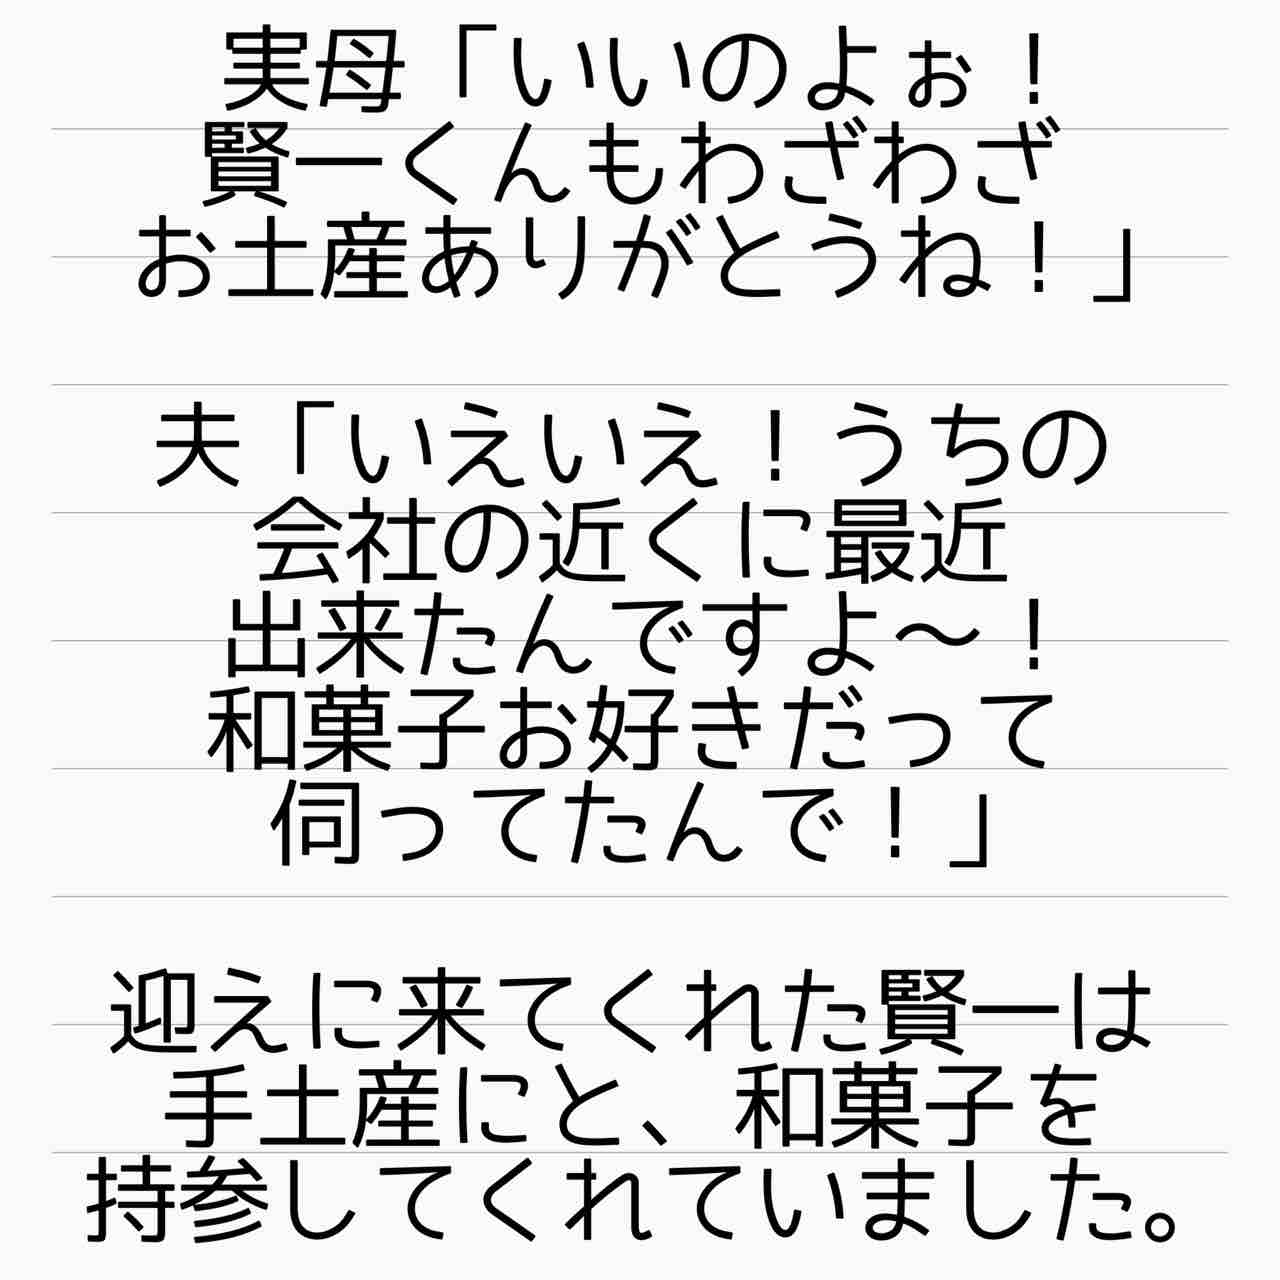 実母「いいのよぉ！
賢一くんもわざわざ
お土産ありがとうね！」
夫「いえいえ！うちの
会社の近くに最近
出来たんですよ～！
和菓子お好きだって
伺ってたんで！」
迎えに来てくれた賢一は
手土産にと、和菓子を
持参してくれていました。